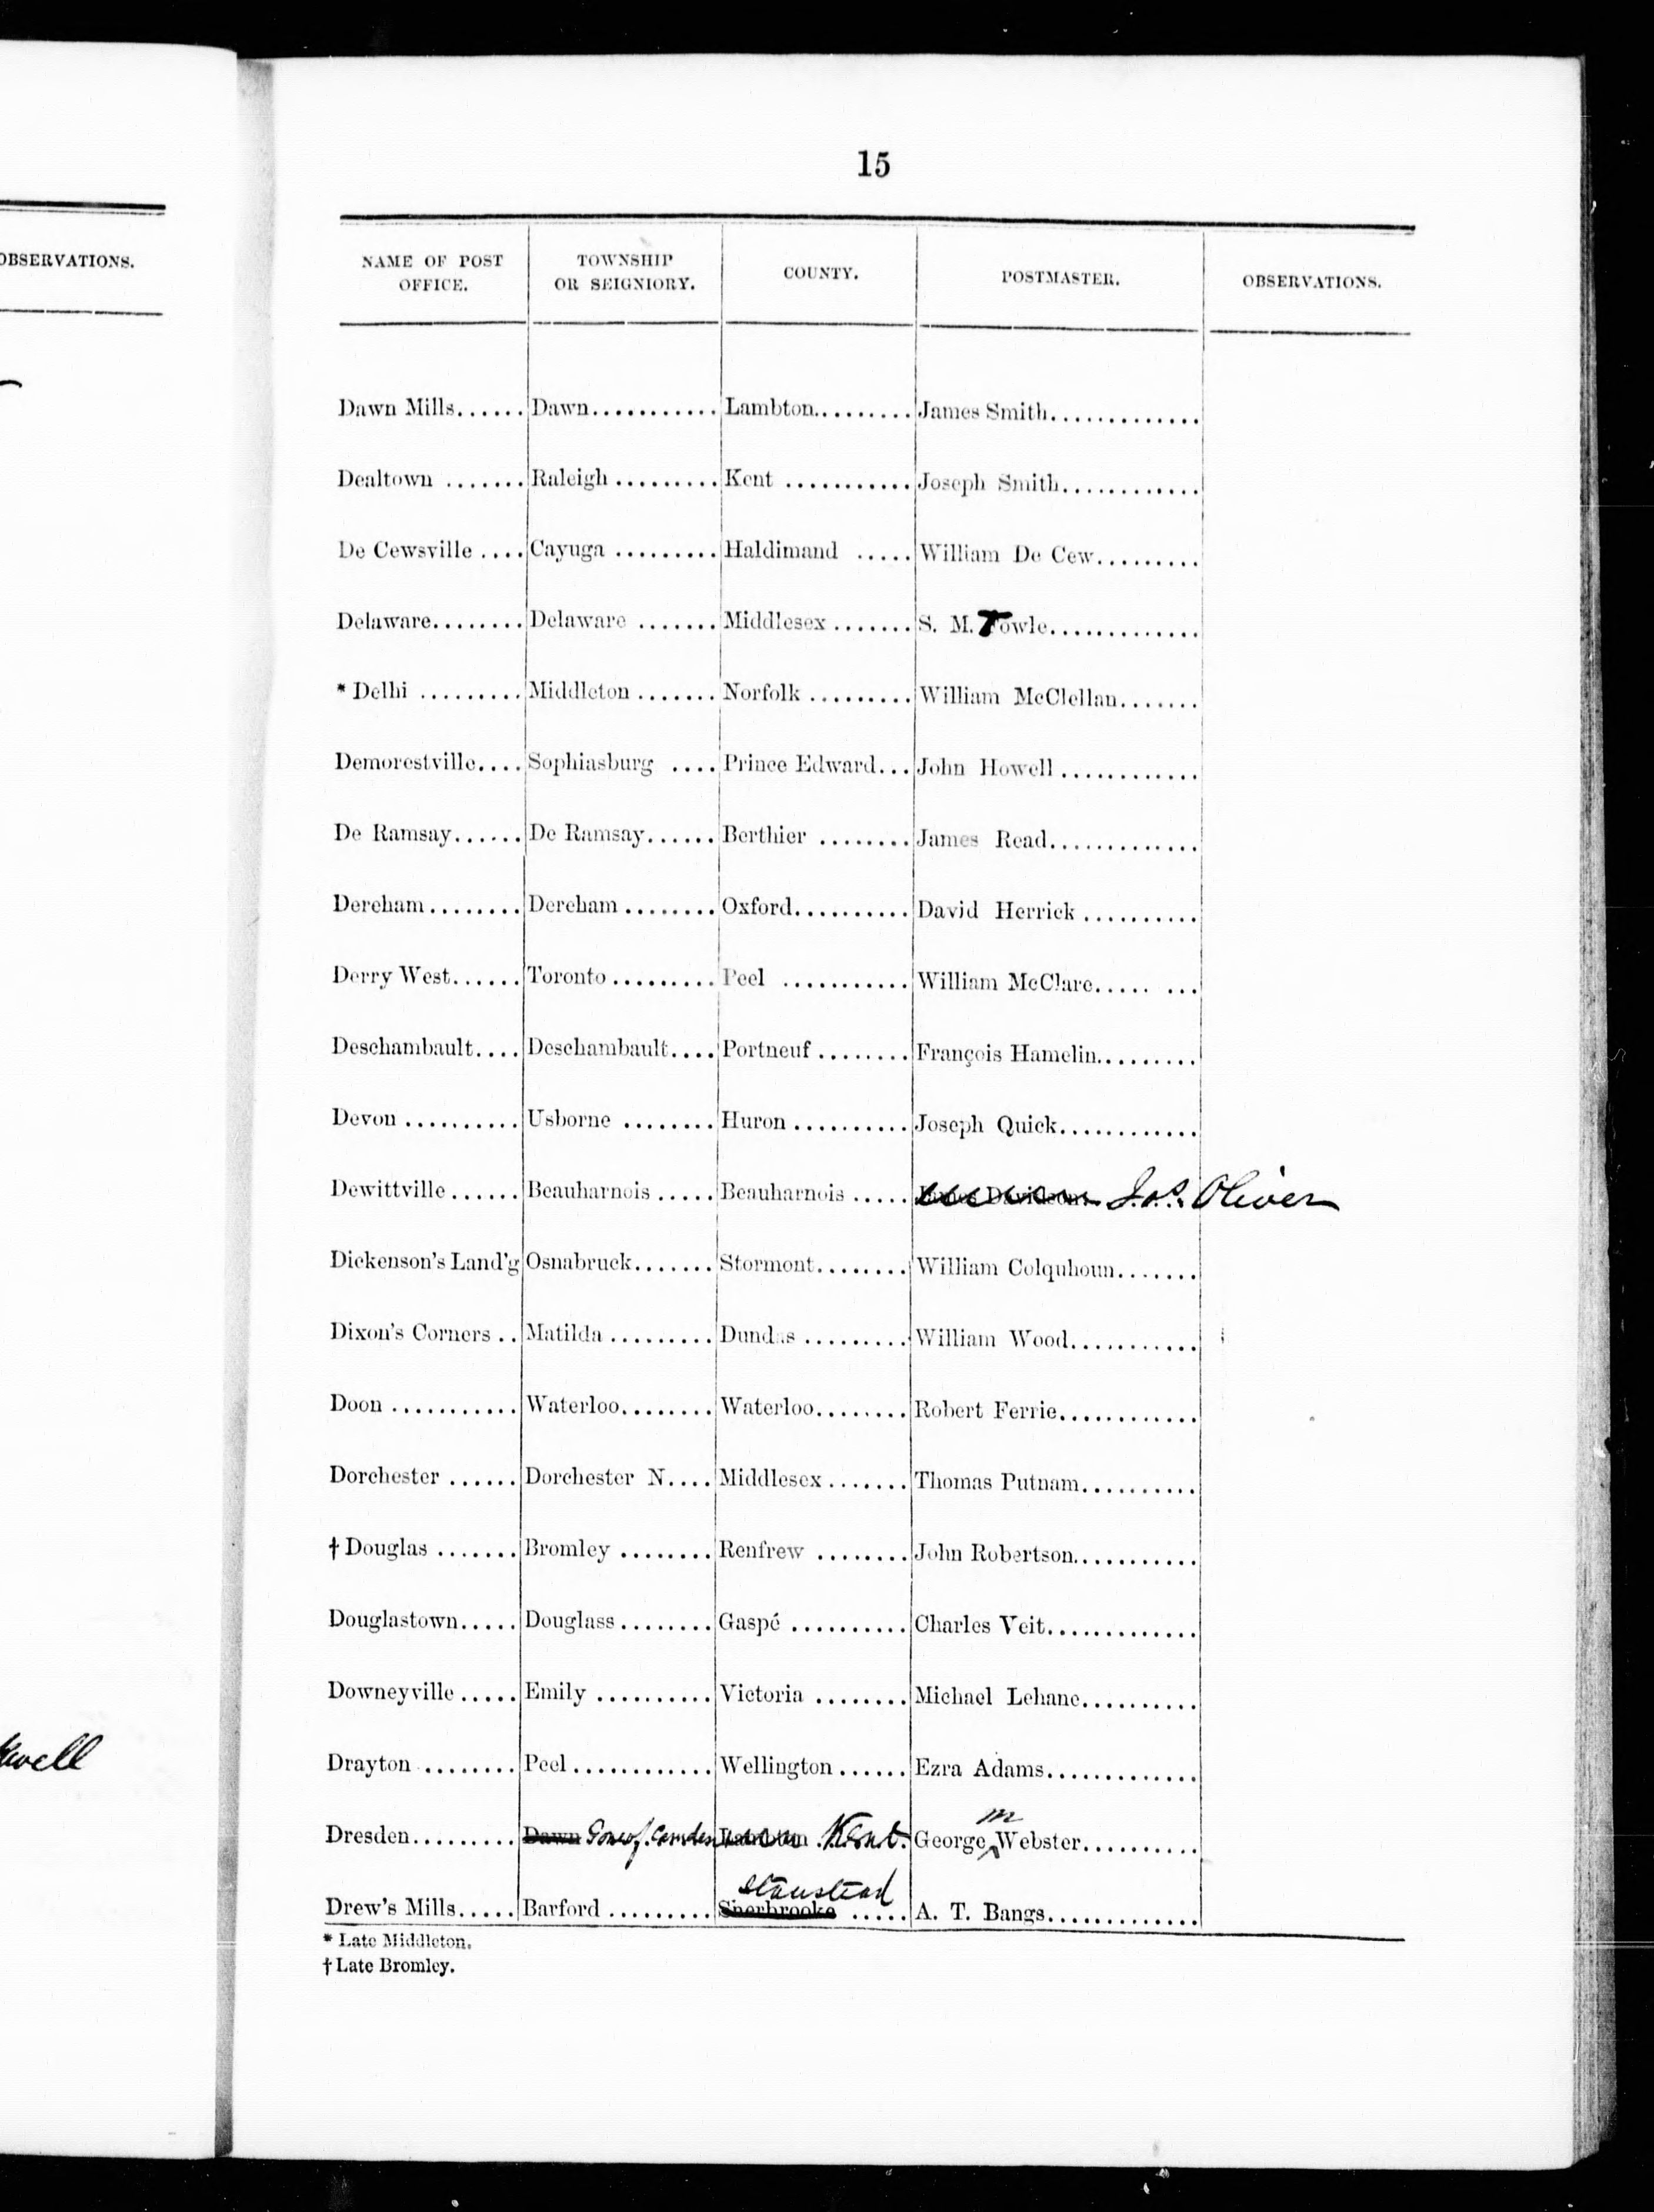 15
OBSERVATIONS.
NAME OF POST OFFICE. TOWNSHIP OR SEIGNIORY. COUNTY. POSTMASTER. OBSERVATIONS.
Dawn Mills...... Dawn........... Lambton......... James Smith.............
Dealtown ....... Raleigh ......... Kent ........... Joseph Smith............
De Cewsville .... Cayuga ......... Haldimand ..... William De Cew.........
Delaware........ Delaware ....... Middlesex ....... S. M. Towle.............
* Delhi ......... Middleton ....... Norfolk ......... William McClellan.......
Demorestville.... Sophiasburg .... Prince Edward... John Howell ............
De Ramsay...... De Ramsay...... Berthier ........ James Read.............
Dereham........ Dereham ........ Oxford.......... David Herrick ..........
Derry West...... Toronto ......... Peel ........... William McClare..... ...
Deschambault.... Deschambault.... Portneuf ........ François Hamelin.........
Devon .......... Usborne ........ Huron .......... Joseph Quick............
Dewittville ...... Beauharnois ..... Beauharnois ..... James Davidson Jos. Oliver
Dickenson's Land'g Osnabruck....... Stormont........ William Colquhoun.......
Dixon's Corners .. Matilda ......... Dundas ......... William Wood...........
Doon ........... Waterloo........ Waterloo........ Robert Ferrie............
Dorchester ...... Dorchester N.... Middlesex ....... Thomas Putnam..........
† Douglas ....... Bromley ........ Renfrew ........ John Robertson...........
Douglastown..... Douglass ........ Gaspé .......... Charles Veit.............
Downeyville ..... Emily .......... Victoria ........ Michael Lehane..........
ewell
Drayton ........ Peel ............ Wellington ...... Ezra Adams.............
m
Dresden......... Dawn Gore of Camden Lambton Kent. George Webster..........
Stanstead
Drew's Mills..... Barford ......... Sherbrooke ..... A. T. Bangs.............
* Late Middleton.
† Late Bromley.